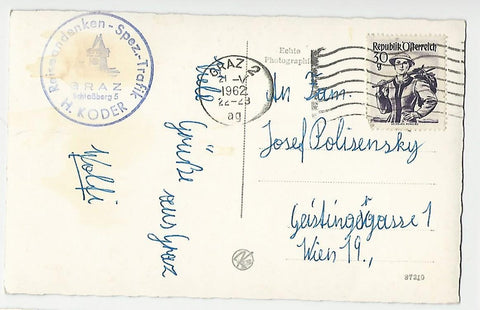 Reiseandenken - Spez.-Trafik
GRAZ
Schloßberg 5
H. KODER
Viele
Grüße aus Graz
Wolfi
GRAZ 2
21.-V
1962
22-23
ag
Echte
Photographie
Republik Österreich
30
g
An Fam.
Josef Polisensky
Geistingergasse 1
Wien 19.,
87210